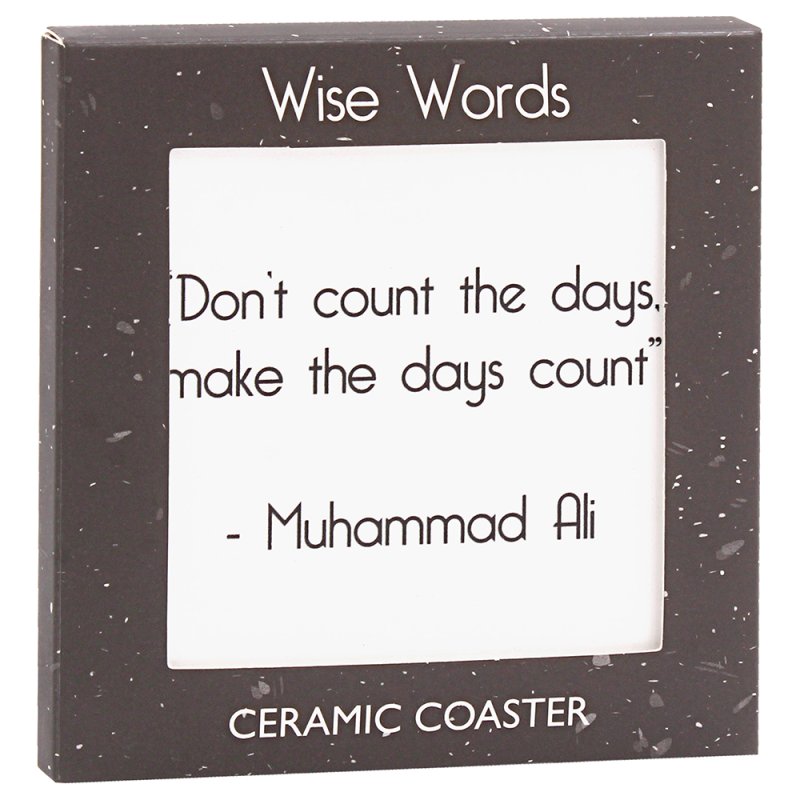 Wise Words
“Don't count the days,
make the days count”
- Muhammad Ali
CERAMIC COASTER